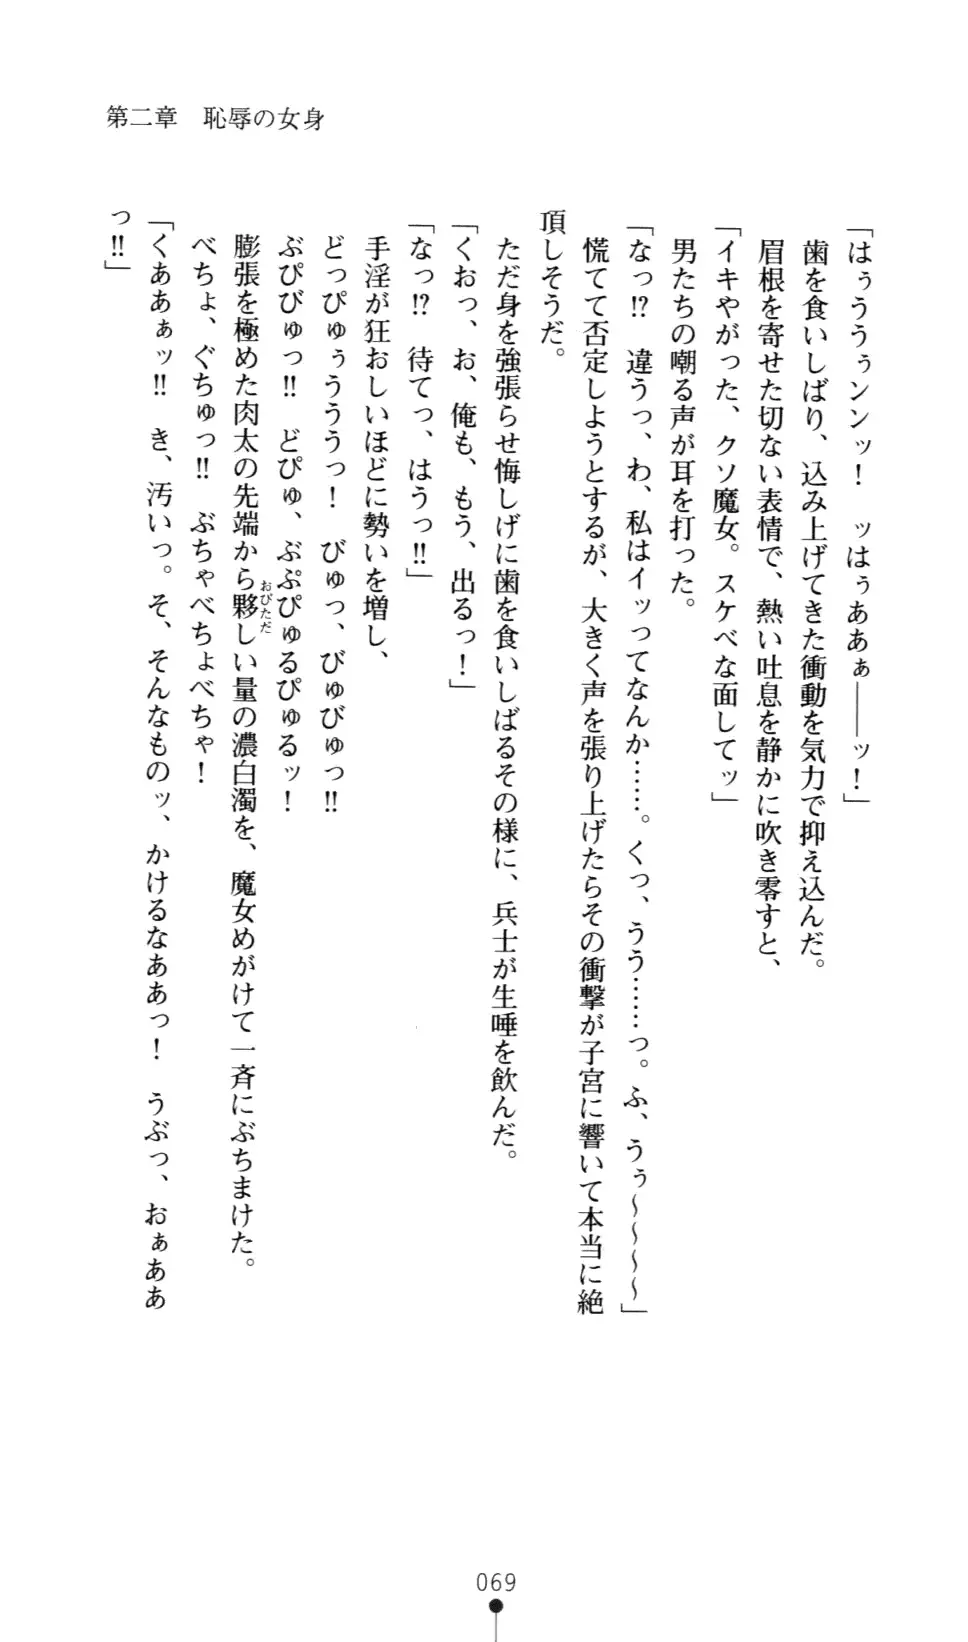 第二章　恥辱の女身
「はぅううぅンンッ！　ッはぅああぁ――ッ！」
歯を食いしばり、込み上げてきた衝動を気力で抑え込んだ。
眉根を寄せた切ない表情で、熱い吐息を静かに吹き零すと、
「イキやがった、クソ魔女。スケベな面してッ」
男たちの嘲る声が耳を打った。
「なっ⁉　違うっ、わ、私はイッってなんか……。くっ、うう……っ。ふ、うぅ～～～～」
慌てて否定しようとするが、大きく声を張り上げたらその衝撃が子宮に響いて本当に絶
頂しそうだ。
ただ身を強張らせ悔しげに歯を食いしばるその様に、兵士が生唾を飲んだ。
「くおっ、お、俺も、もう、出るっ！」
「なっ⁉　待てっ、はうっ‼」
手淫が狂おしいほどに勢いを増し、
どっぴゅぅううっ！　びゅっ、びゅびゅっ‼
ぶぴびゅっ‼　どぴゅ、ぶぷぴゅるぴゅるッ！
膨張を極めた肉太の先端から夥しい量の濃白濁を、魔女めがけて一斉にぶちまけた。
おびただ
べちょ、ぐちゅっ‼　ぶちゃべちょべちゃ！
「くああぁッ‼　き、汚いっ。そ、そんなものッ、かけるなああっ！　うぶっ、おぁああ
っ‼」
069